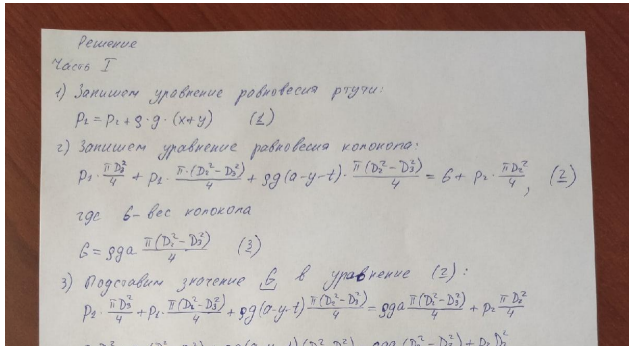 Решение
Часть I
1) Запишем уравнение равновесия ртути:
P₂ = P₁ + ρ·g·(x+y) (1)
2) Запишем уравнение равновесия колокола:
P₂·πD₃²/4 + P₁·π·(D₂²−D₃²)/4 + ρg(a−y−t)·π(D₂²−D₃²)/4 = G + P₁·πD₂²/4, (2)
где G – вес колокола
G = ρga π(D₂²−D₃²)/4 (3)
3) Подставим значение G в уравнение (2):
P₂·πD₃²/4 + P₁·π(D₂²−D₃²)/4 + ρg(a−y−t)π(D₂²−D₃²)/4 = ρga π(D₂²−D₃²)/4 + P₁πD₂²/4